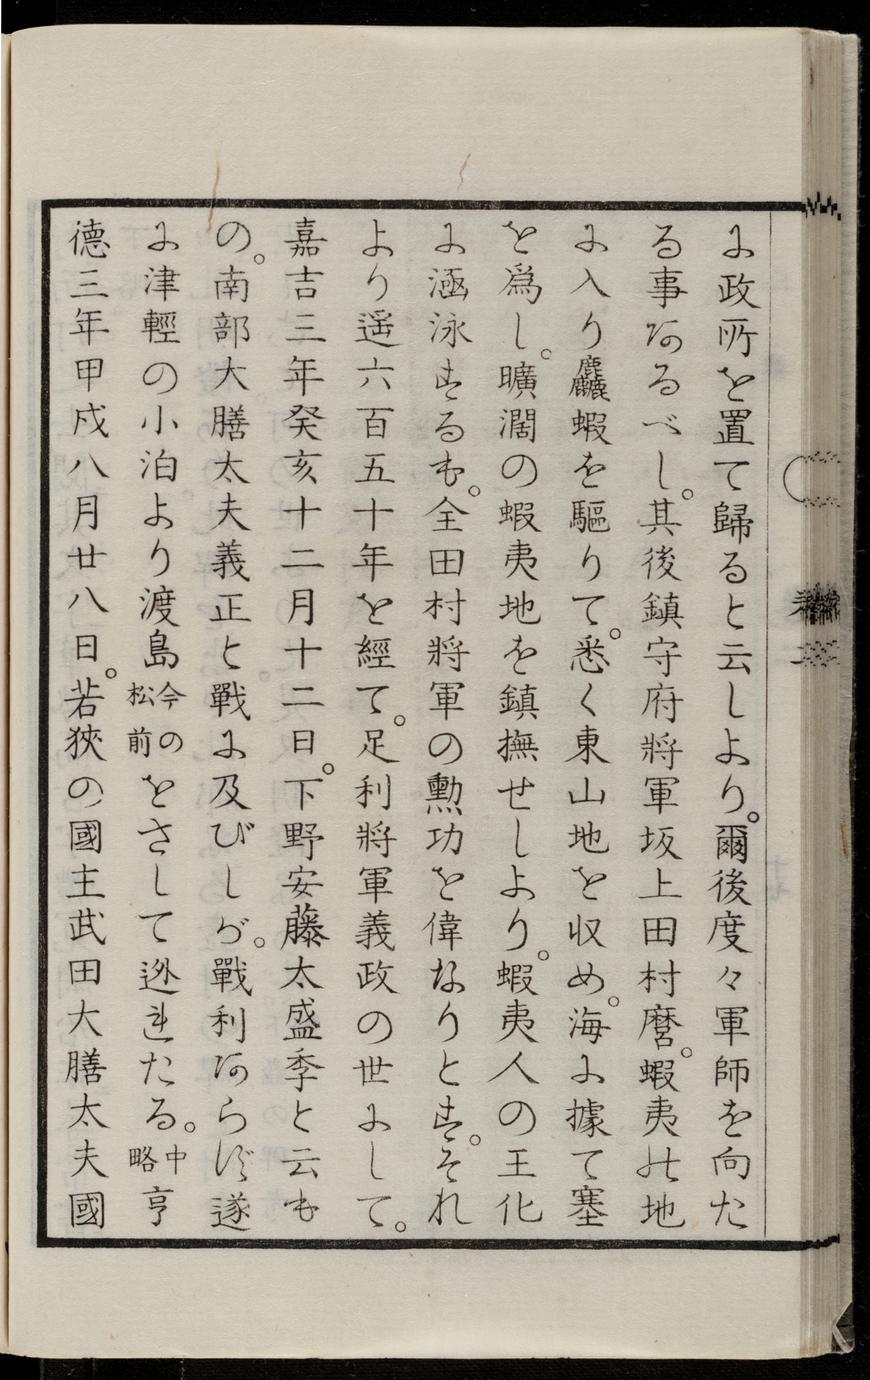 に政所を置て歸ると云しより。爾後度々軍師を向た
る事あるべし。其後鎮守府將軍坂上田村麿。蝦夷の地
に入り麤蝦を驅りて。悉く東山地を収め。海に據て塞
を爲し。曠濶の蝦夷地を鎮撫せしより。蝦夷人の王化
に涵泳するも。全田村將軍の勲功を偉なりとす。それ
より遥六百五十年を經て。足利將軍義政の世にして。
嘉吉三年癸亥十二月十二日。下野安藤太盛季と云も
の。南部大膳太夫義正と戰に及びしが。戰利あらず遂
に津輕の小泊より渡島今の松前をさして逃れたる。中略亨
德三年甲戌八月廿八日。若狹の國主武田大膳太夫國